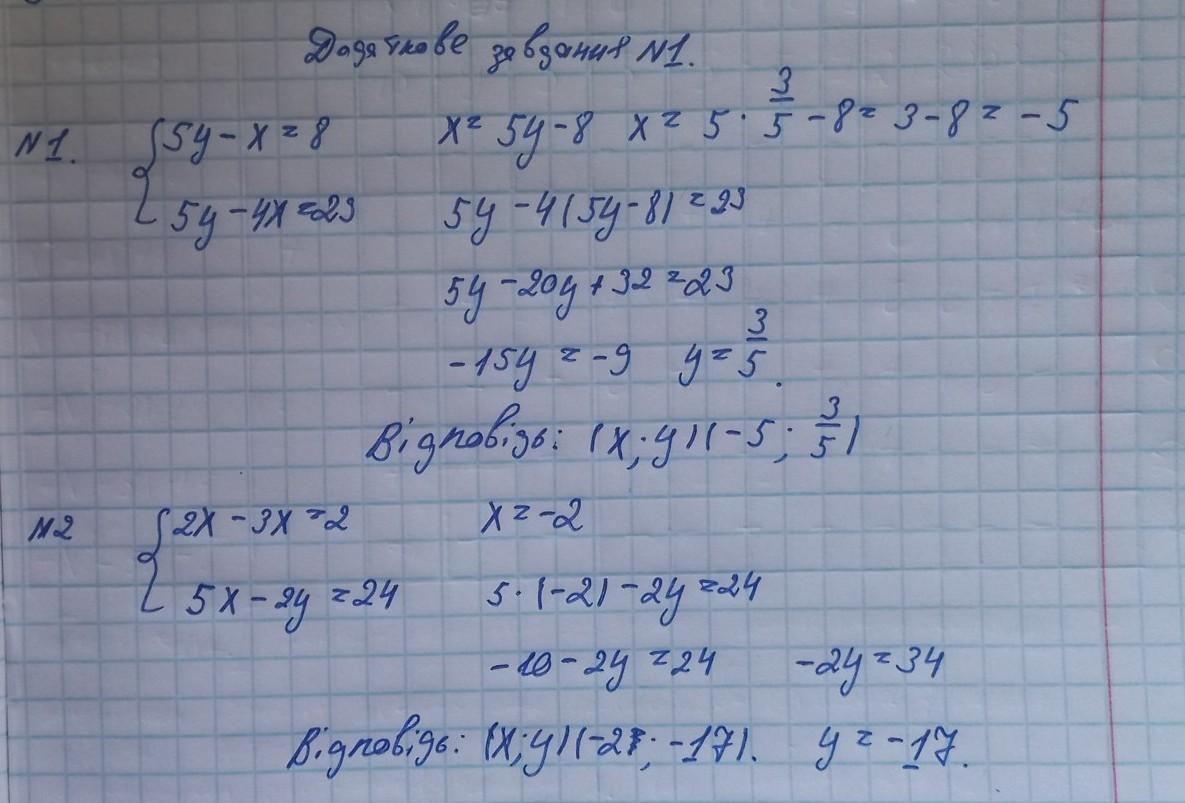 Додаткове завдання №1.
№1. { 5y - x = 8    x = 5y - 8    x = 5 · 3/5 - 8 = 3 - 8 = - 5
5y - 4x = 23    5y - 4(5y - 8) = 23
5y - 20y + 32 = 23
- 15y = - 9    y = 3/5.
Відповідь: (x; y) (- 5; 3/5)
№2 { 2x - 3x = 2    x = - 2
5x - 2y = 24    5 · (-2) - 2y = 24
- 10 - 2y = 24    - 2y = 34
Відповідь: (x; y) (-2; -17).    y = - 17.